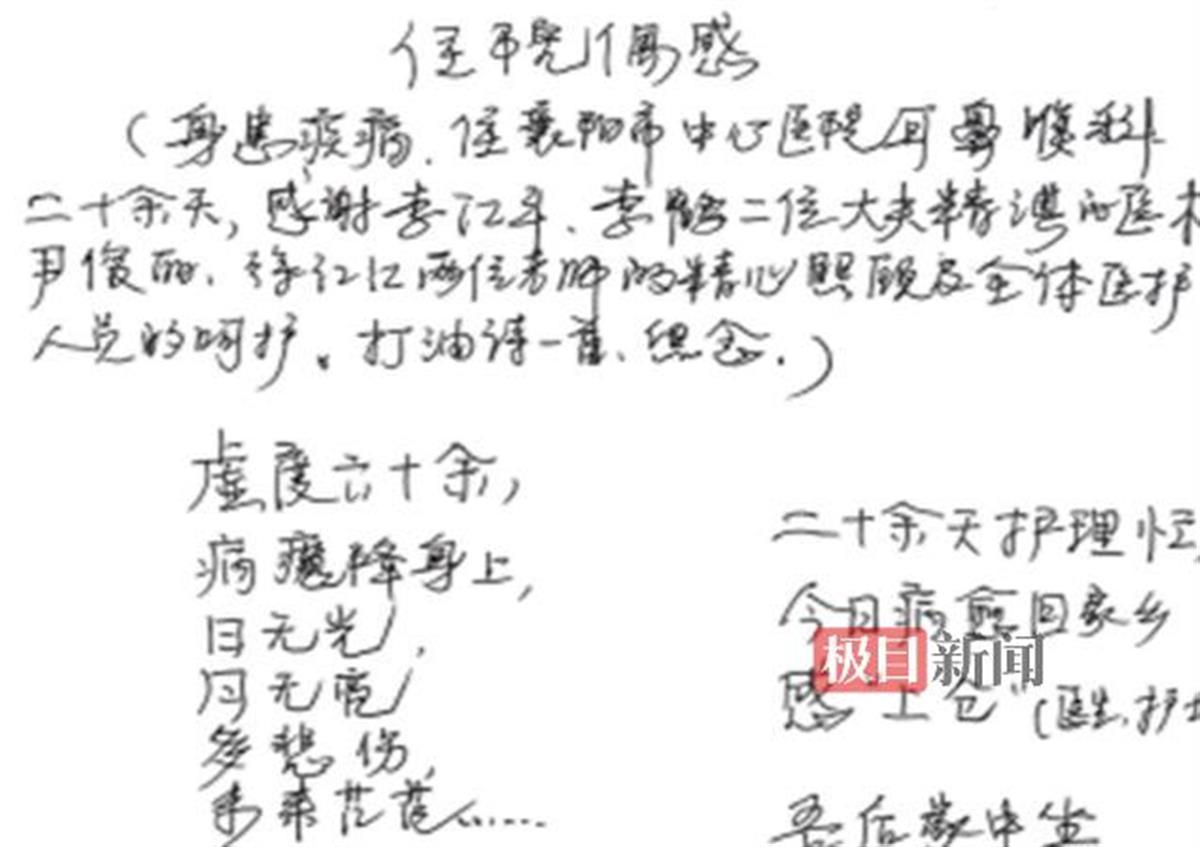 住院偶感
（身患疾病、住襄阳市中心医院耳鼻喉科
二十余天，感谢李江平、李鹏二位大夫精湛的医术
尹俊丽、徐红红两位老师的精心照顾及全体医护
人员的呵护。打油诗一首、纪念.）
虚度六十余，
病魔降身上，
日无光，
月无亮
多悲伤，
未来茫茫……
二十余天护理忙，
今日病愈回家乡
感“上仓”（医生、护士
吾后敬中生
极目新闻